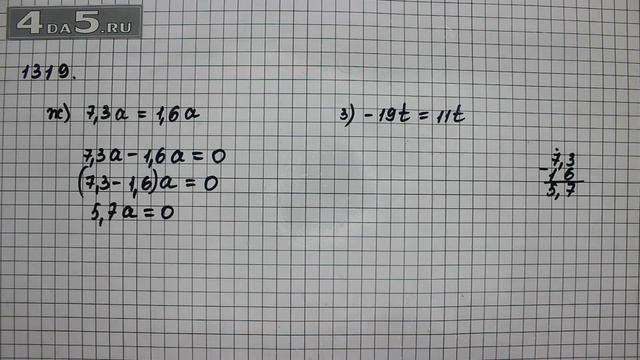 4DA5.RU
1319.
ж) 7,3a = 1,6a
7,3a - 1,6a = 0
(7,3 - 1,6)a = 0
5,7a = 0
з) -19t = 11t
7,3
- 1,6
5,7